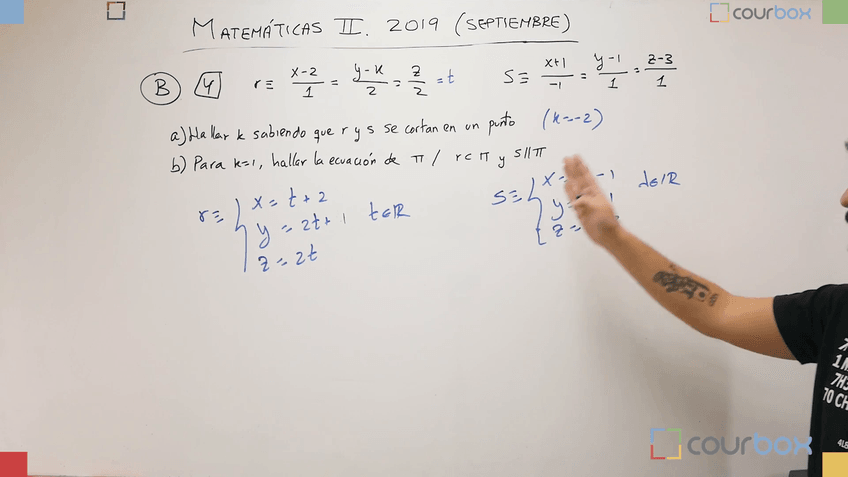 MATEMÁTICAS II. 2019 (SEPTIEMBRE)
courbox
B 4 r≡ x-2/1 = y-k/2 = z/2 = t S≡ x+1/-1 = y-1/1 = z-3/1
a) Hallar k sabiendo que r y s se cortan en un punto (k=-2)
b) Para k=1, hallar la ecuación de π / r⊂π y s||π
r≡ { x = t+2 S≡ { x = -1 λ∈ℝ
y = 2t+1 t∈ℝ y =
z = 2t z =
courbox